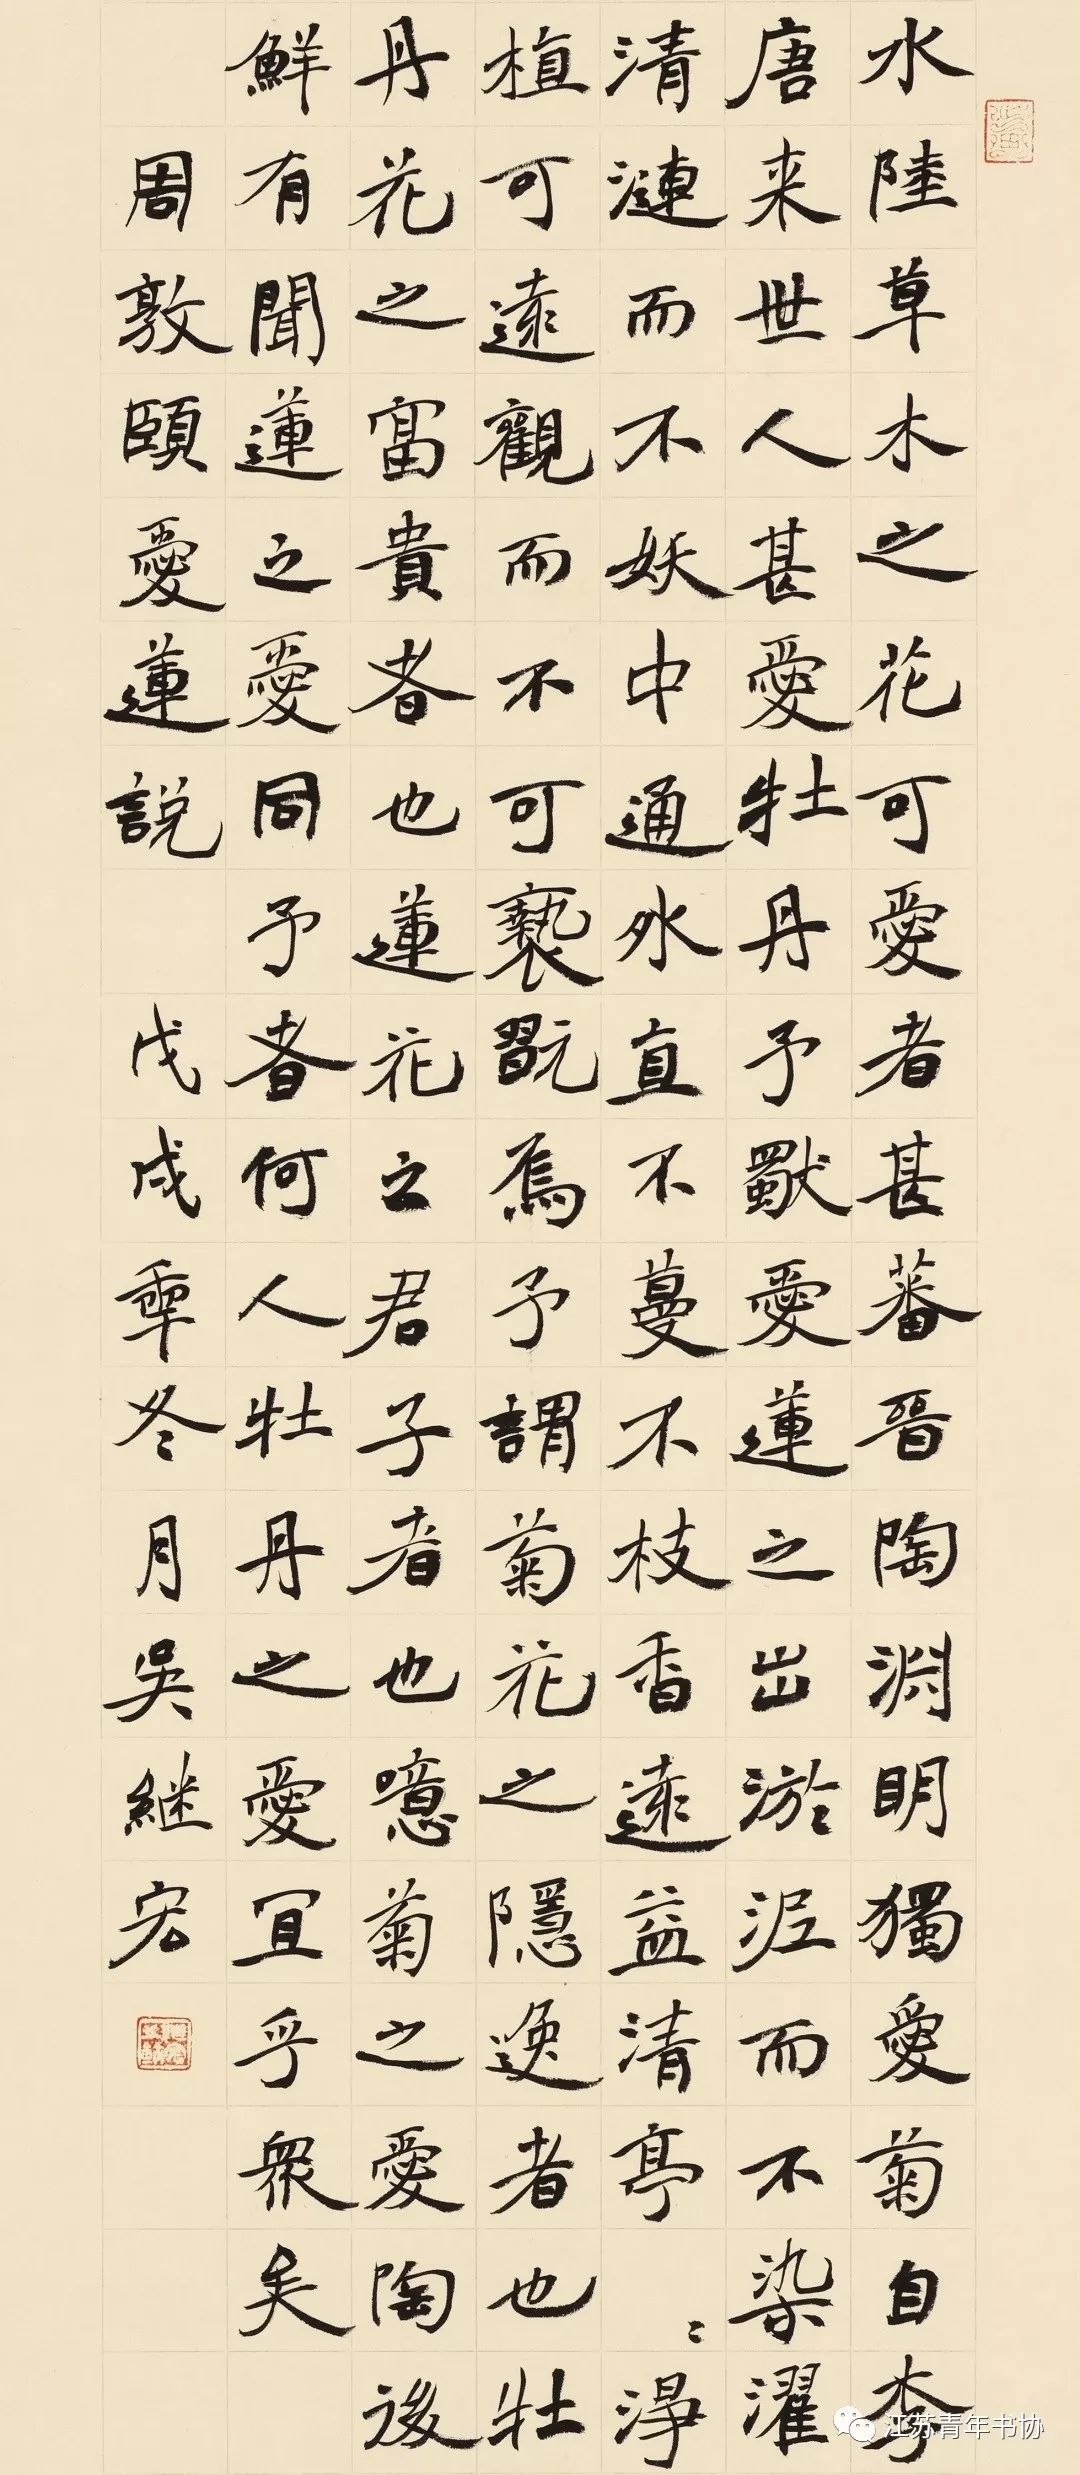 水陸草木之花可愛者甚蕃晉陶渊明獨愛菊自李
唐来世人甚愛牡丹予獨愛蓮之出淤泥而不染濯
清漣而不妖中通外直不蔓不枝香遠益清亭〻淨
植可遠觀而不可褻翫焉予謂菊花之隱逸者也牡
丹花之富貴者也蓮花之君子者也噫菊之愛陶後
鮮有聞蓮之愛同予者何人牡丹之愛宜乎衆矣
周敦頤愛蓮説 戊戌年冬月吳継宏
江苏青年书协